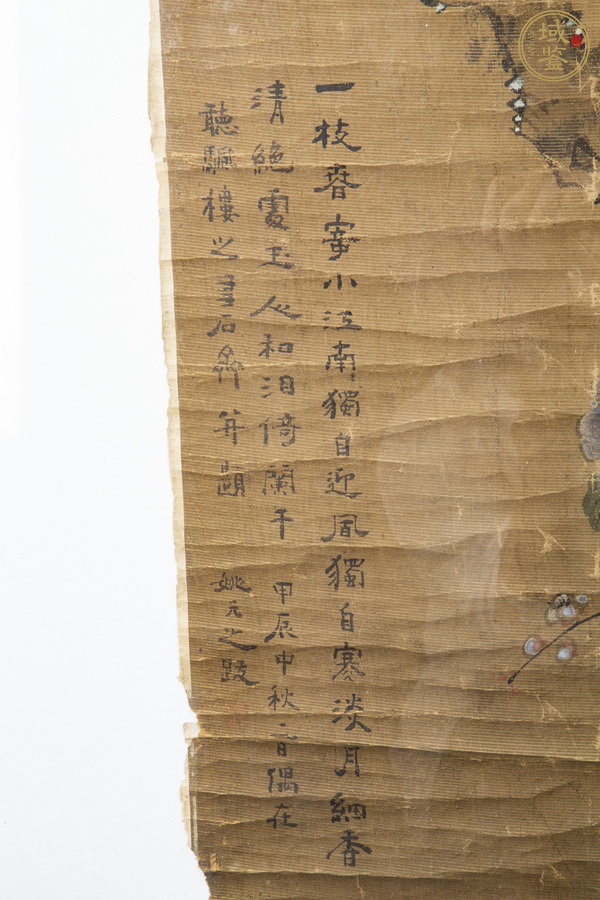 一枝春小江南獨自迎風獨自寒淡月細香
清絕處玉人和泪倚闌干 甲辰中秋日偶在
聽颿樓之書石齋并題 姚元之跋
域鉴